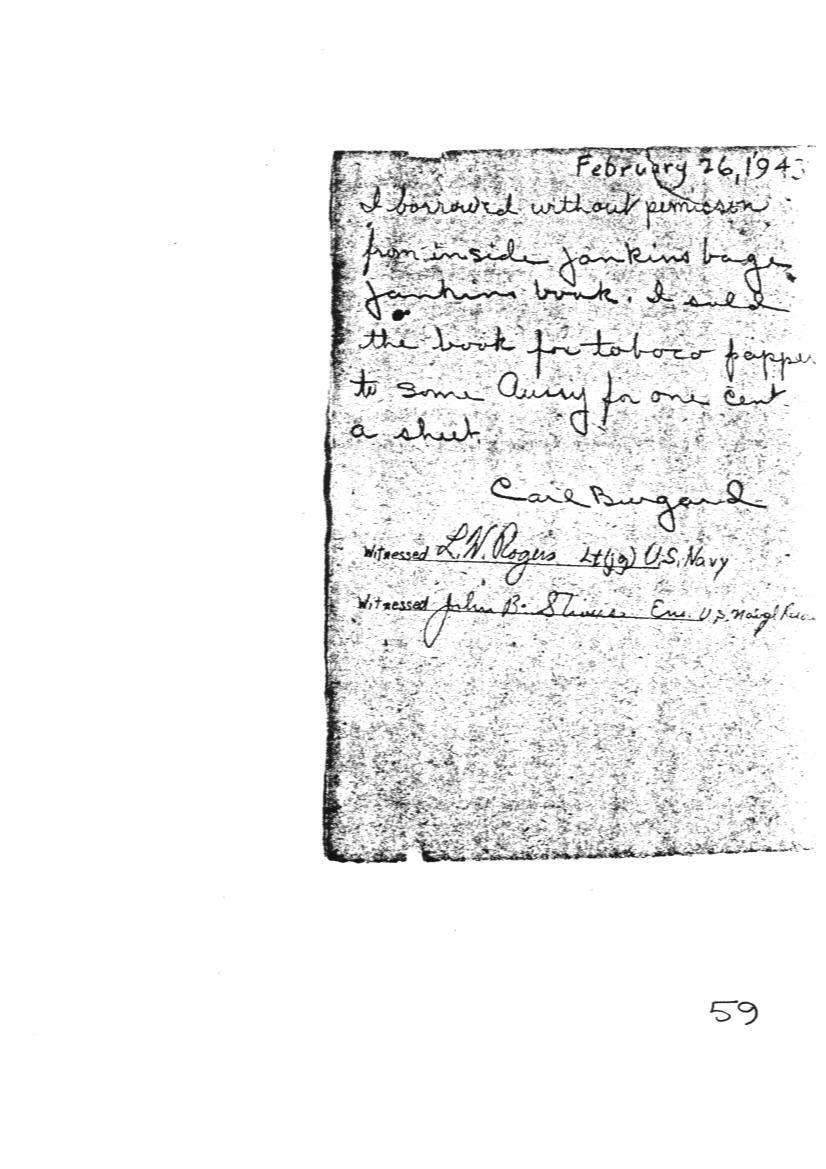 February 26, 194
I borrowed without pemicson
from inside Jankins bage
Jankins book. I sold
the book for toboco papper
to some Aussy for one cent
a sheet.
Carl Burgard
Witnessed L.N. Rogers Lt(jg) U.S. Navy
Witnessed John B. Ens. U.S. Naval
59